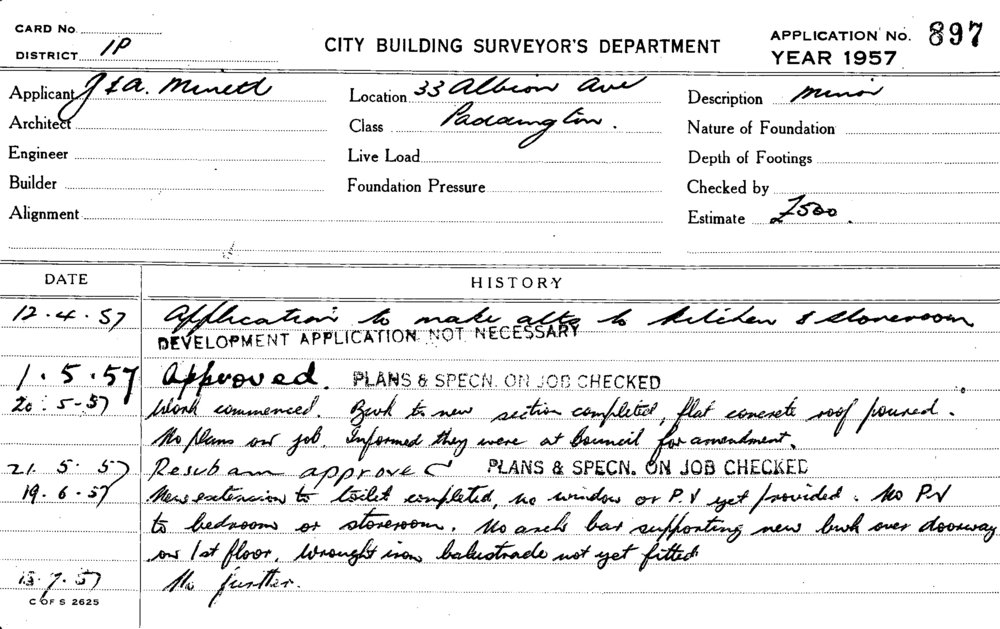 CARD No.
DISTRICT 1P
CITY BUILDING SURVEYOR'S DEPARTMENT
APPLICATION No. 897
YEAR 1957
Applicant J & A. Minett
Location 33 Albion Ave
Description minor
Architect
Class Paddington.
Nature of Foundation
Engineer
Live Load
Depth of Footings
Builder
Foundation Pressure
Checked by
Alignment
Estimate £500.
DATE HISTORY
12.4.57 Application to make alts to kitchen & storeroom
DEVELOPMENT APPLICATION NOT NECESSARY
1.5.57 Approved. PLANS & SPECN. ON JOB CHECKED
20.5-57 Work commenced. Bwk to new section completed, flat concrete roof poured.
No plans on job. Informed they were at Council for amendment.
21.5.57 Resub am approved PLANS & SPECN. ON JOB CHECKED
19.6.57 New extension to toilet completed, no window or P.V yet provided. No P.V
to bedroom or storeroom. No arch bar supporting new bwk over doorway
on 1st floor, wrought iron balustrade not yet fitted
15.7.57 No further.
C OF S 2625